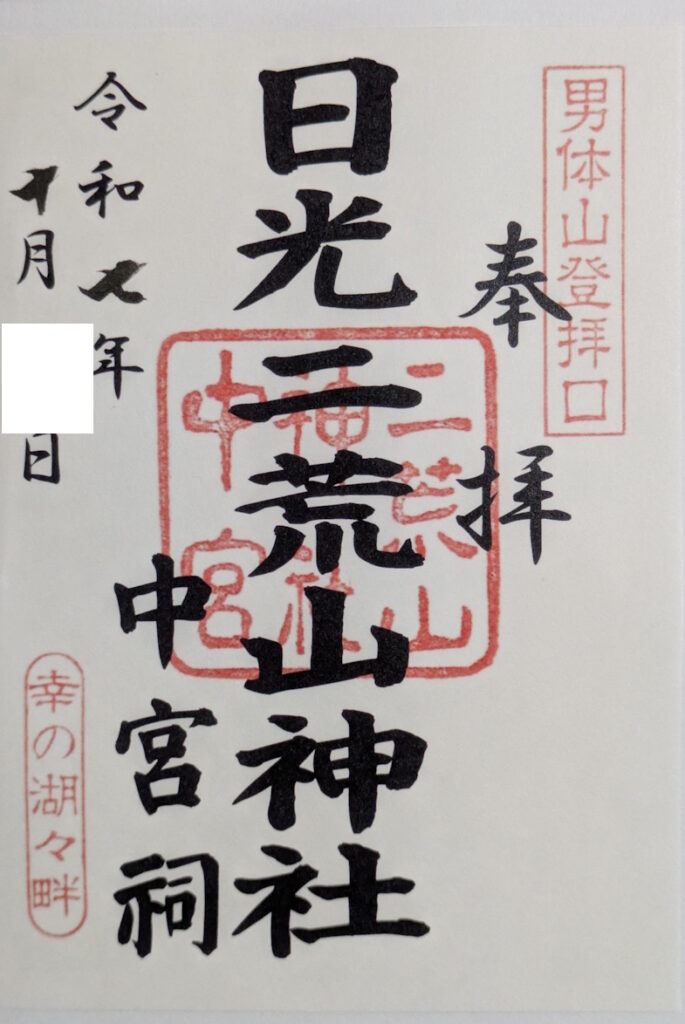 男体山登拝口
奉拝
日光二荒山神社
二荒山
神社
中宮
中宮祠
令和七年
十月 日
幸の湖々畔